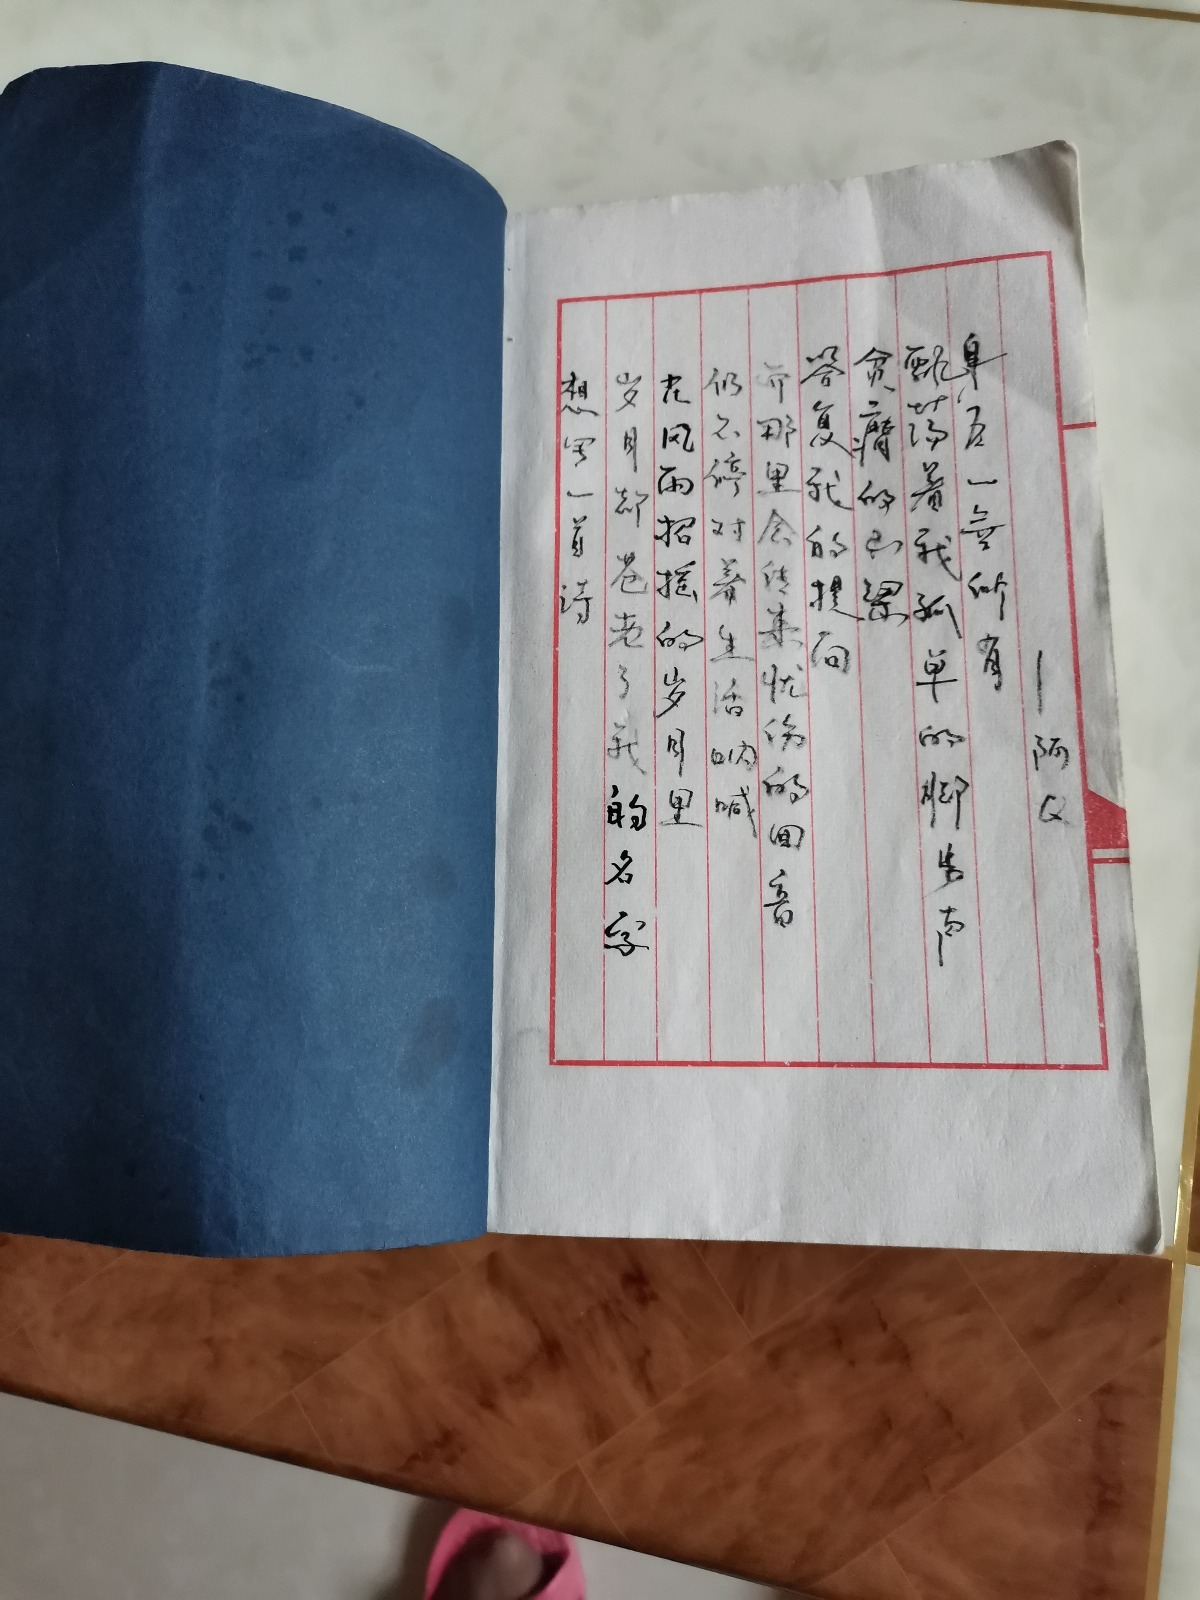 想写一首诗
岁月却苍老了我的名字
在风雨招摇的岁月里
仍不停对着生活呐喊
那里会传来忧伤的回音
答复我的提问
贫瘠的山梁
飘荡着我孤单的脚步声
身后一無所有
—阿